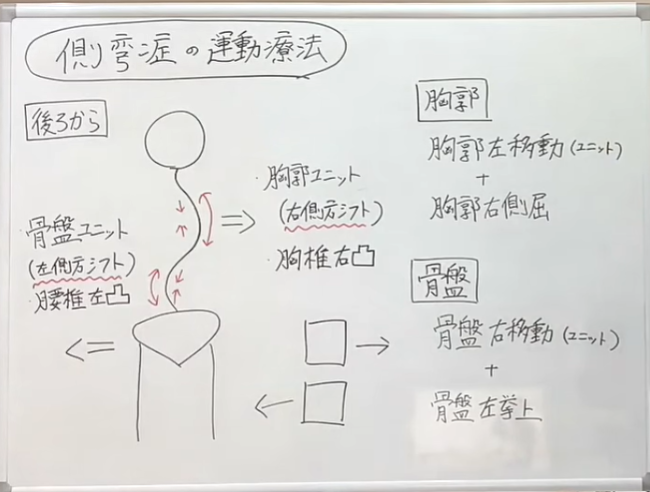 側弯症の運動療法
後ろから
骨盤ユニット
(左側方シフト)
・腰椎左凸
・胸郭ユニット
(右側方シフト)
・胸椎右凸
胸郭
胸郭左移動(ユニット)
+
胸郭右側屈
骨盤
骨盤右移動(ユニット)
+
骨盤左挙上